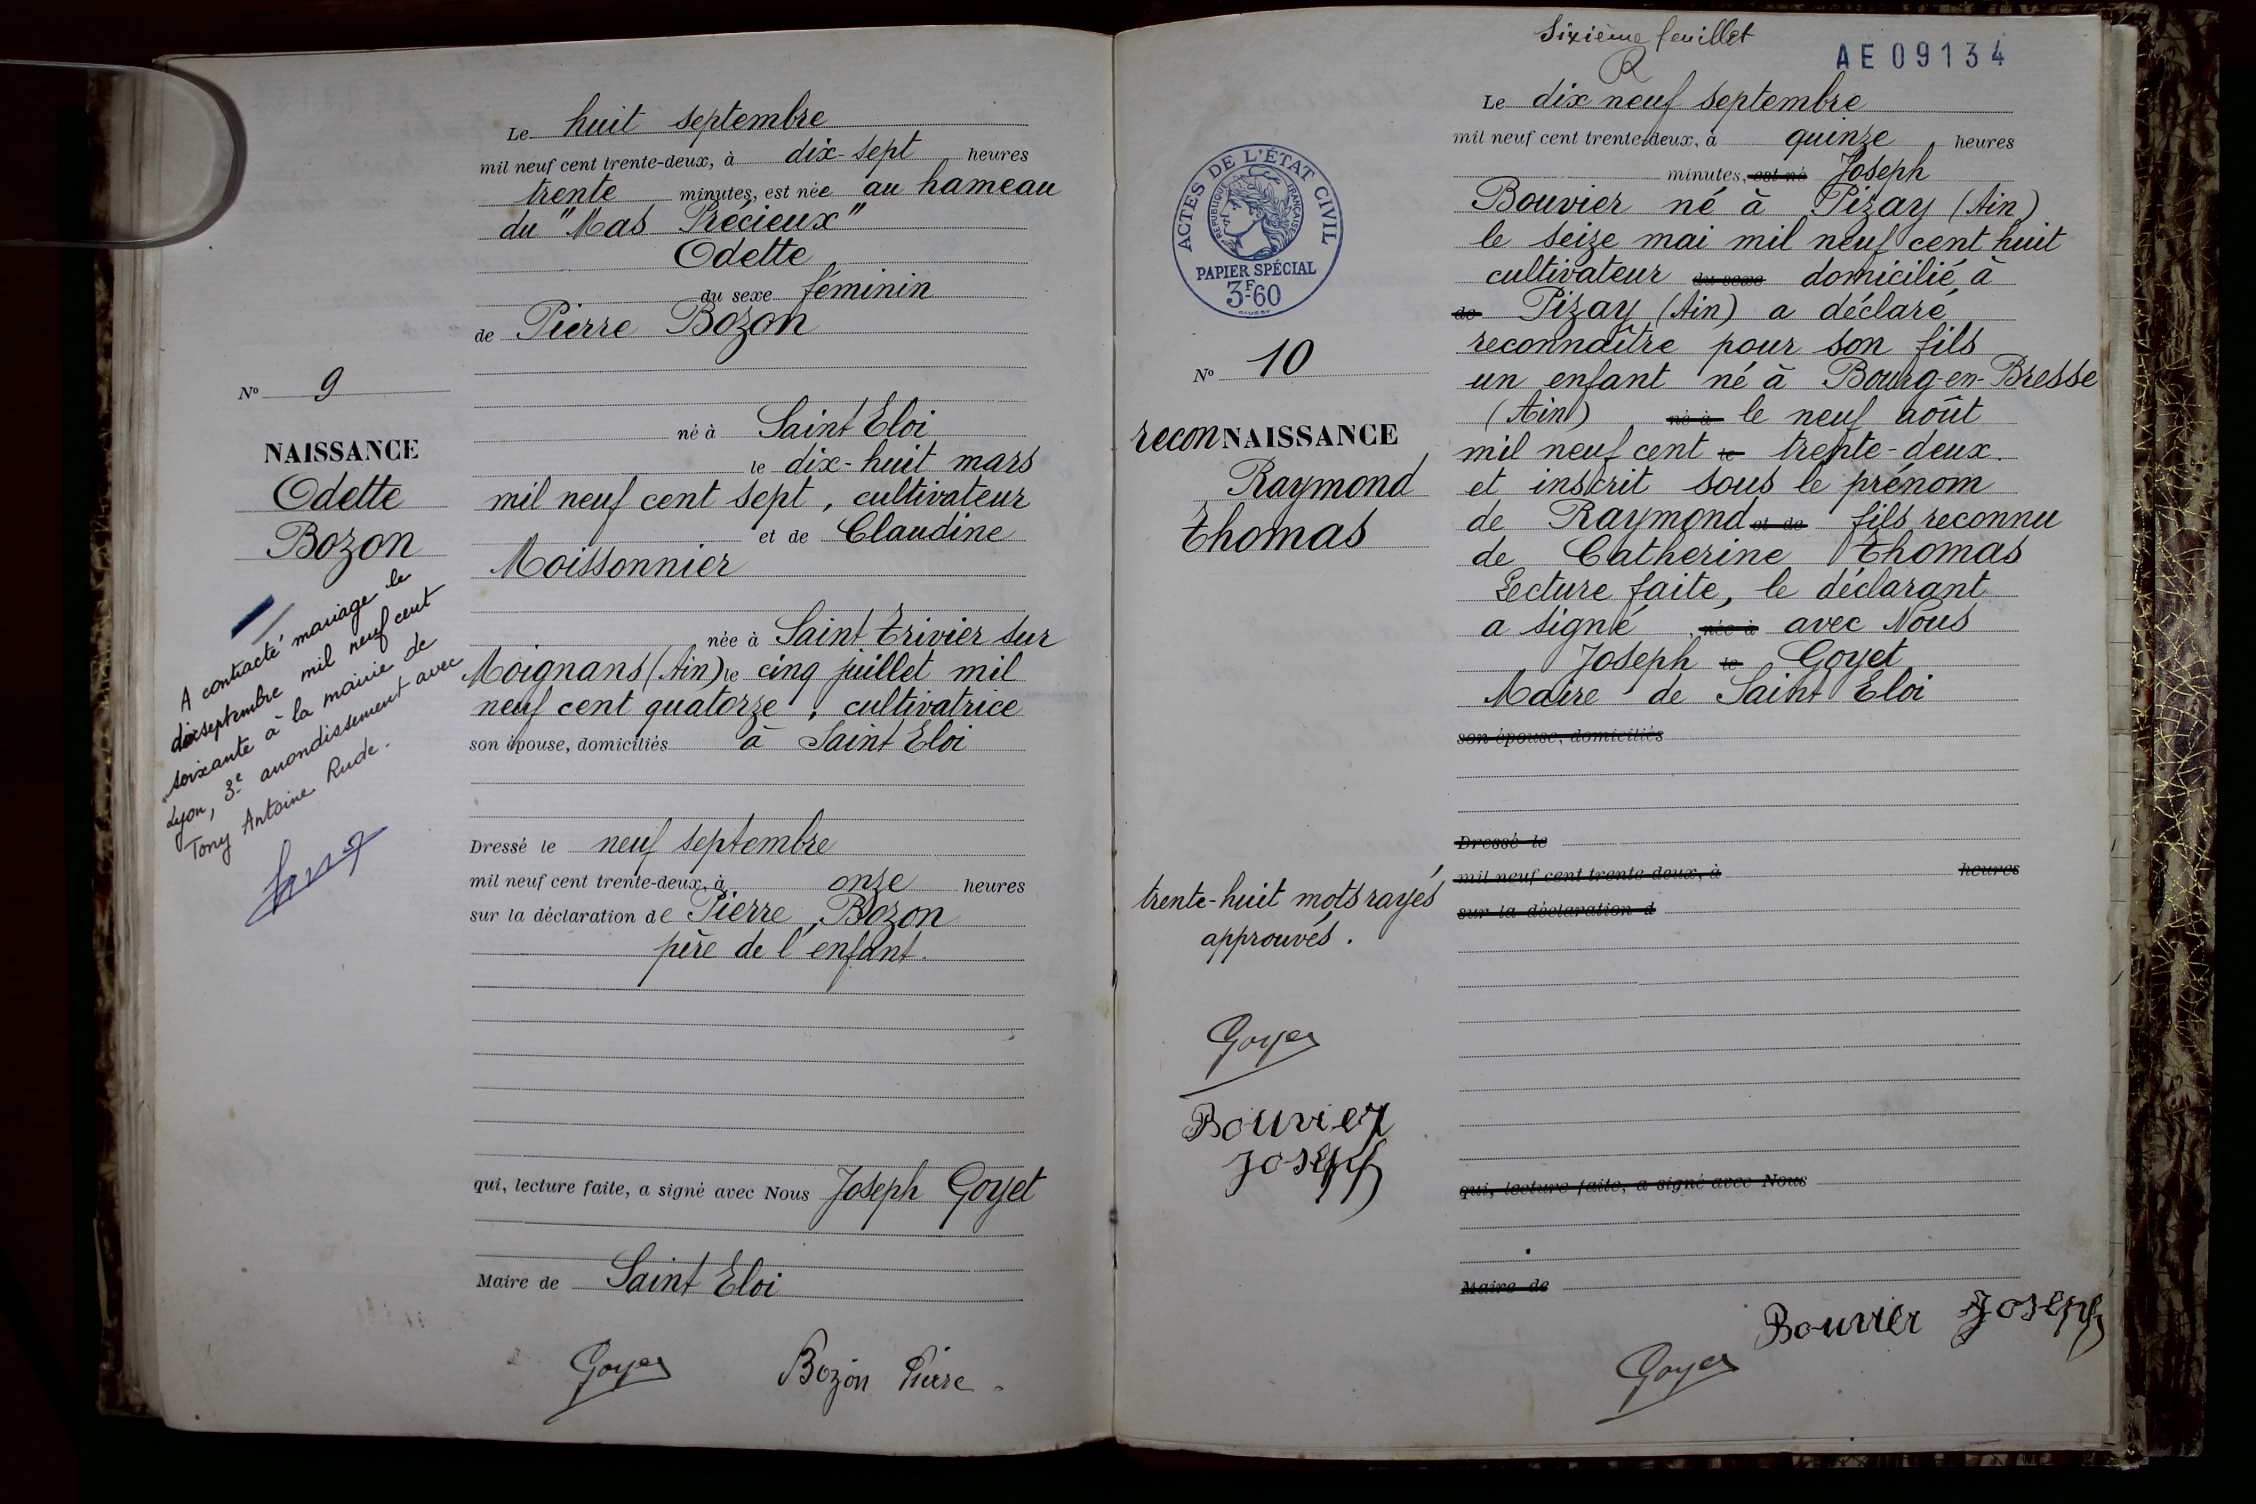 Le huit septembre
mil neuf cent trente-deux, à dix-sept heures
trente minutes, est née au hameau
du "Mas Précieux"
Odette
du sexe féminin
de Pierre Bozon
né à Saint Eloi
le dix-huit mars
mil neuf cent sept, cultivateur
et de Claudine
Moissonnier
née à Saint Trivier sur
Moignans (Ain) le cinq juillet mil
neuf cent quatorze, cultivatrice
son épouse, domiciliés à Saint Eloi
Dressé le neuf septembre
mil neuf cent trente-deux, à onze heures
sur la déclaration de Pierre Bozon
père de l'enfant.
qui, lecture faite, a signé avec Nous Joseph Goyet
Maire de Saint Eloi
Goyet Bozon Pierre.
No 9
NAISSANCE
Odette
Bozon
A contracté mariage le
dix septembre mil neuf cent
soixante à la mairie de
Lyon, 3e arrondissement avec
Tony Antoine Rude.
Sixième feuillet
AE 09134
R
Le dix neuf septembre
mil neuf cent trente-deux, à quinze heures
minutes, est né Joseph
Bouvier né à Pizay (Ain)
le seize mai mil neuf cent huit
cultivateur du sexe domicilié à
de Pizay (Ain) a déclaré
reconnaître pour son fils
un enfant né à Bourg-en-Bresse
(Ain) né à le neuf août
mil neuf cent le trente-deux.
et inscrit sous le prénom
de Raymond et de fils reconnu
de Catherine Thomas
Lecture faite, le déclarant
a signé née à avec Nous
Joseph le Goyet
Maire de Saint Eloi
son épouse, domiciliés
Dressé le
mil neuf cent trente-deux, à heures
sur la déclaration d
qui, lecture faite, a signé avec Nous
Maire de
Bouvier Joseph
Goyet
ACTES DE L'ÉTAT CIVIL
RÉPUBLIQUE FRANÇAISE
PAPIER SPÉCIAL
3F60
No 10
reconNAISSANCE
Raymond
Thomas
trente-huit mots rayés
approuvés.
Goyet
Bouvier
Joseph